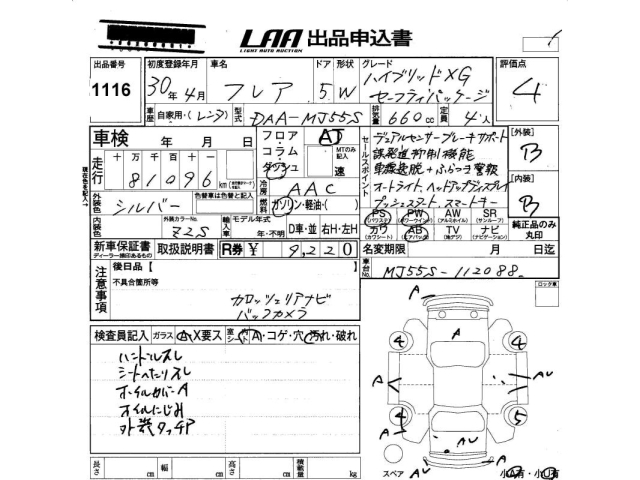 LAA 出品申込書
LIGHT AUTO AUCTION
出品番号 初度登録年月 車名 ドア 形状 グレード 評価点
1116 30年4月 フレア 5 W ハイブリッドXG
セーフティパッケージ 4
車歴 自家用・(レンタ) 型式 DAA-MJ55S 排気量 660cc 定員 4人
車検 年 月 日 フロア AT
コラム MTのみ記入
ダッシュ 速
走行 十万千百十一
81096 km
冷房 AAC
燃料 ガソリン・軽油・( )
セールスポイント
デュアルセンサーブレーキサポート
誤発進抑制機能
車線逸脱+ふらつき警報
オートライト、ヘッドアップディスプレイ
プッシュスタート スマートキー
[外装]
B
[内装]
B
外装色 シルバー 色替車は色替と記入
内装色 外装カラーNo. Z2S
輸入車 モデル年式 年・不明 D車・並 右H・左H
PS PW AW SR
(パワステ) (パワーウインド) (アルミホイル) (サンルーフ)
カワ AB TV ナビ
(カワシート) (エアバッグ) (地デジ) (ナビゲーション)
純正品のみ丸印
新車保証書 取扱説明書 R券 ¥ 9,220
ディーラー捺印あるもの
名変期限 月 日迄
車台No. MJ55S-112088
注意事項
後日品 [ ]
不具合箇所等
カロッツェリアナビ
バックカメラ
ロック車
検査員記入 ガラス A・X要ス 室内 A・コゲ・穴・汚れ・破れ
ハンドルスレ
シートヘたりスレ
ホイルカバーA
オイルにじみ
外装タッチP
A
4 A 4
A A AU
4 5
A A U A
AU AU
スペア 小A有・小U有
長さ cm 幅 cm 高さ cm 積載量 kg